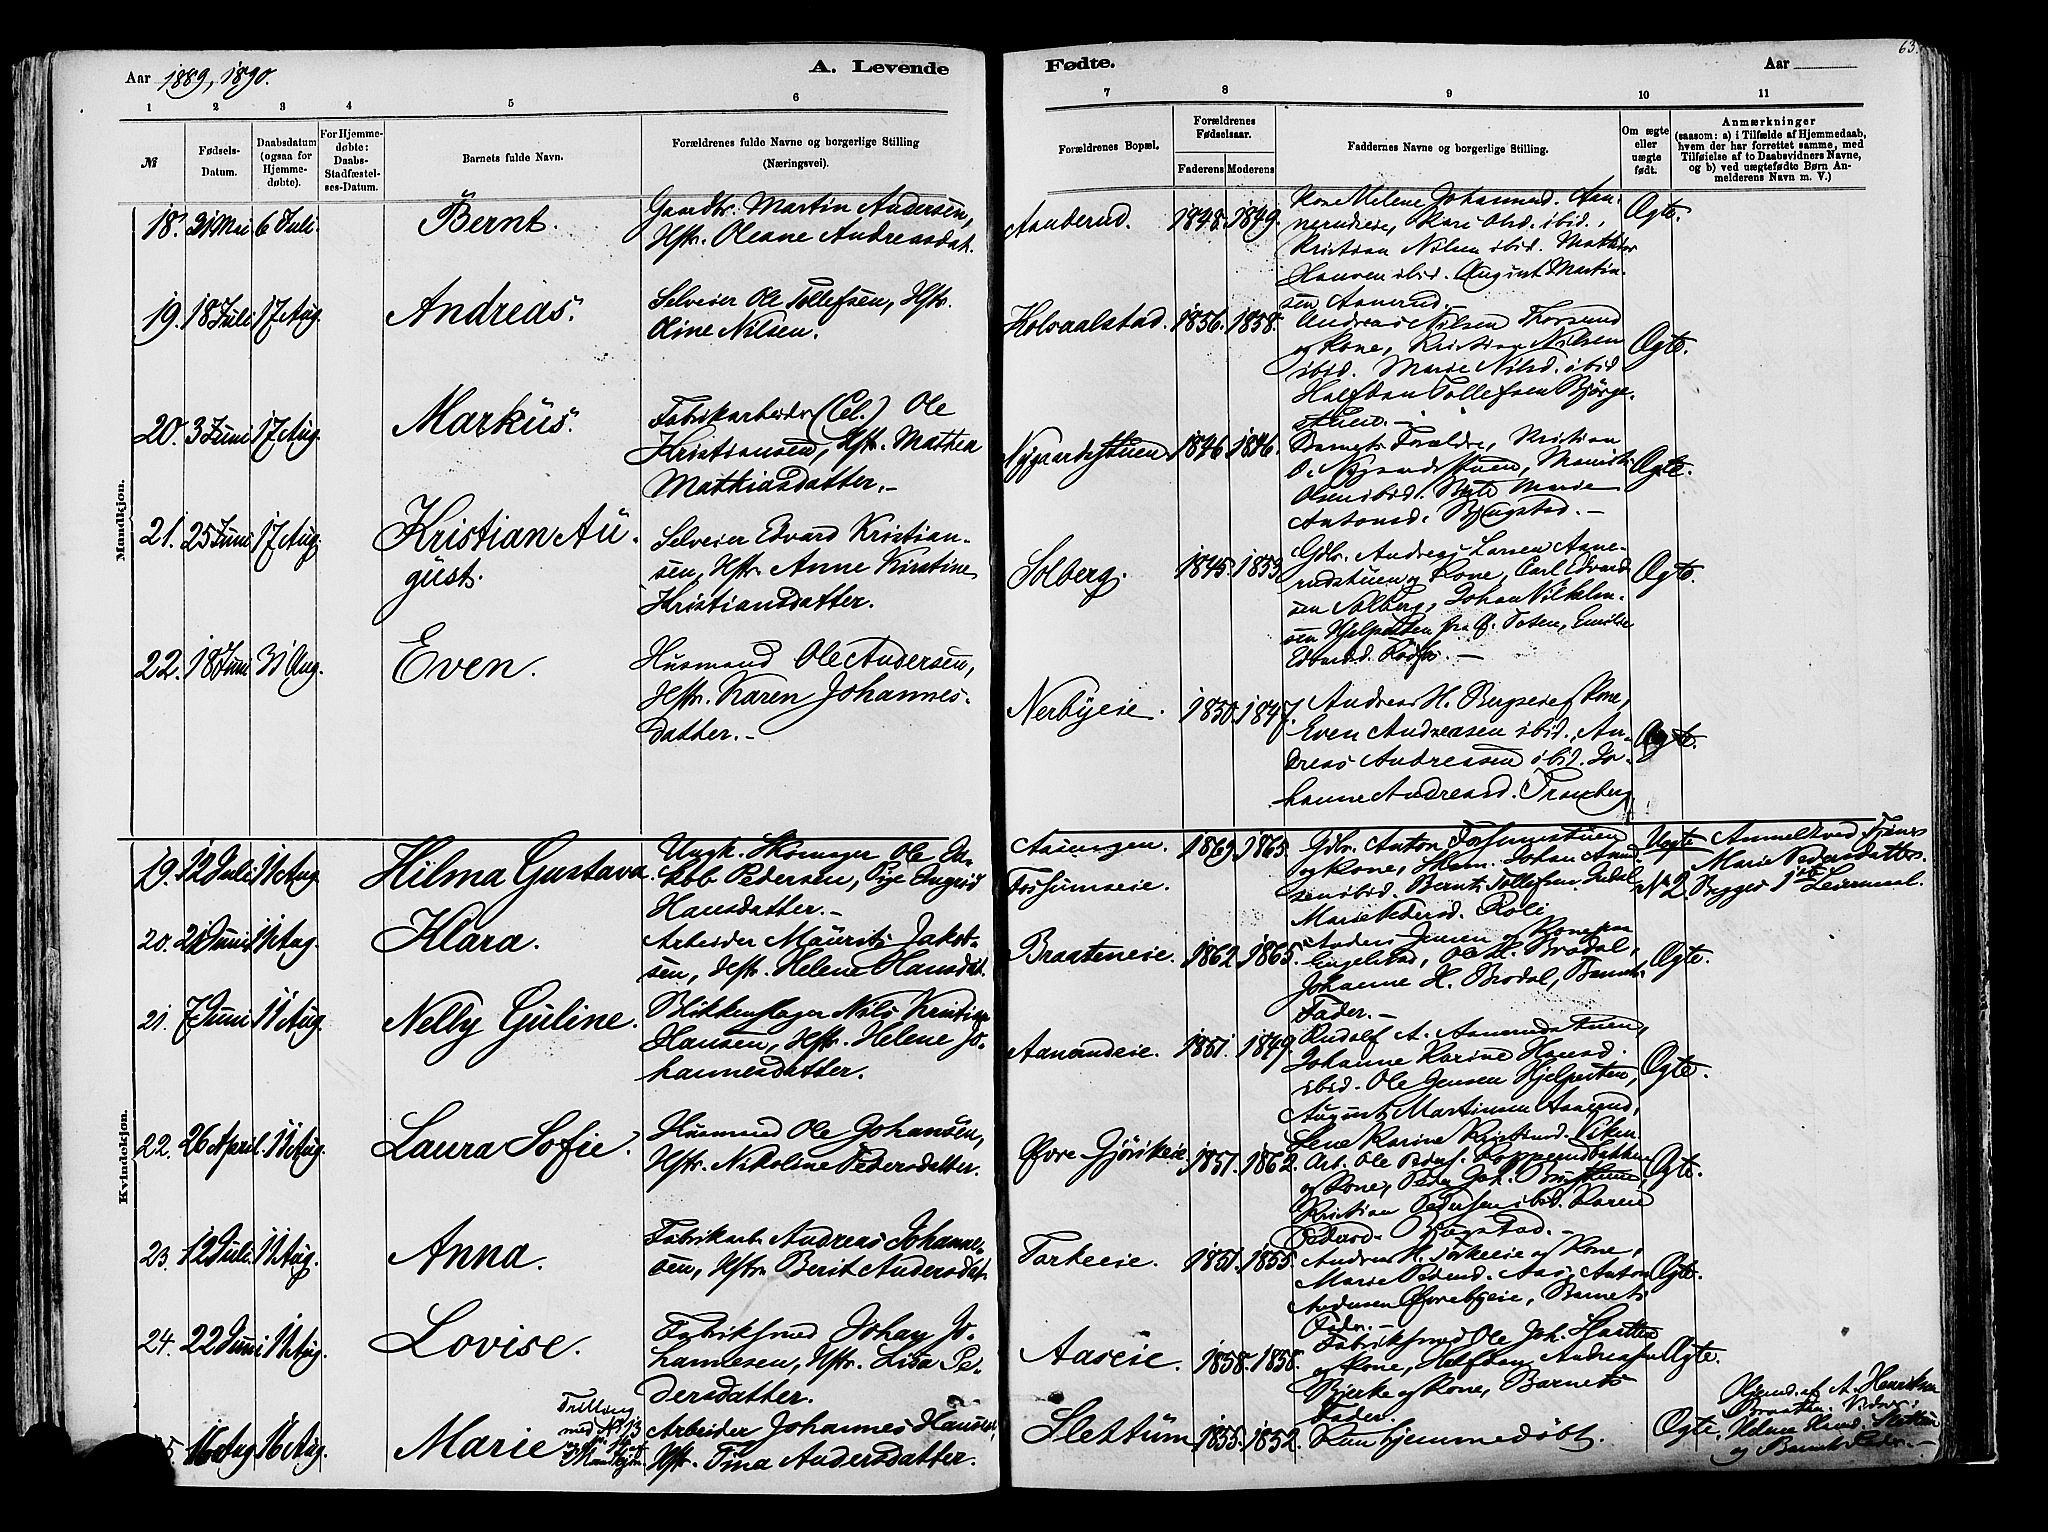 63.
Aar 1889, 1890.
A. Levende
Fødte.
Aar
1 2 3 4 5 6 7 8 8 9 10 11
№
Fødsels-
Datum.
Daabsdatum
(ogsaa for
Hjemme-
døbte).
For Hjemme-
døbte:
Daabs-
Stadfæstel-
ses-Datum.
Barnets fulde Navn.
Forældrenes fulde Navne og borgerlige Stilling
(Næringsvei).
Forældrenes Bopæl.
Forældrenes
Fødselsaar.
Faderens Moderens
Faddernes Navne og borgerlige Stilling.
Om ægte
eller
uægte
født.
Anmærkninger
(saasom: a) i Tilfælde af Hjemmedaab,
hvem der har forrettet samme, med
Tilføielse af to Daabsvidners Navne,
og b) ved uægtefødte Børn An-
melderens Navn m. V.)
Mandkjøn.
18. 31 Mai 6 Juli. Bernt.
Gaardbr. Martin Andersen,
Hstr. Oleane Andreasdat.
Aanderud. 1848. 1849.
Kone Helene Johannesd. Aan-
nerudeie, Kari Olsd. ibid.,
Kristian Nilsen ibid. Mathias
Hansen ibid. August Martin-
sen Aanerud.
Ægte.
19. 18 Juli 17 Aug. Andreas.
Selveier Ole Tollefsen, Hstr.
Oline Nilsen.
Kolvaalstad. 1856. 1858.
Andreas Nilsen
og Kone, Kristian Nilsen
ibid. Marie Nilsd. ibid
Halfdan Tollefsen Bjørge-
stuen.
Ægte.
20. 3 Juni 17 Aug. Markus.
Fabrikarbeider (Cel.) Ole
Kristiansen, Hstr. Mathea
Mathiasdatter.-
Nygaardsstuen 1846 1846.
Barnets Forældre, Kristian
O. Nygaardsstuen,
Olsen ibid. Marie
Antonsd. Bjugstad.-
Ægte.
21. 25 Juni 17 Aug. Kristian Au-
gust.
Selveier Edvard Kristian-
sen, Hstr. Anne Kirstine
Kristiansdatter.
Solberg. 1845. 1853.
Gdbr. Andreas Larsen Aane-
rudstuen og Kone, Carl Edvard-
sen Solberg, Johan Vilhelm-
sen Hjelpesten fra Ø. Toten, Emilie
Edvardsd.
Ægte.
22. 18 Juni 31 Aug. Even.
Husmand Ole Andersen,
Hstr. Karen Johannes-
datter.-
Nerbyeie. 1850. 1847.
Andreas H. og Kone,
Even Andreasen ibid., An-
dreas Andreassen ibid. Jo-
hanne Andreasd. Tranberg.
Ægte.
Kvindekjøn.
19. 12 Juli 11 Aug. Hilma Gustava.
Ungk. Skomager Ole Ja-
kob Pedersen, Pige Ingrid
Hansdatter.-
Fossumseie. 1869. 1865.
Gdbr. Anton Fossumstuen
og Kone, Johan
sen ibid. Bernt Tollefsen
Marie Pedersd.
Uægte
№ 2.
Anmeldt ved
Marie Pedersdatter.
Begges 1ste Leiermaal.
20. 21 Juni 11 Aug. Klara.
Arbeider Maurits Jakob-
sen, Hstr. Helene Hansdat.
Braateneie. 1862. 1865.
Anders Jensen og Kone paa
Engelstad, Ole H. Brodal,
Johanne H. Brodal, Barnets
Fader.-
Ægte.
21. 7 Juni 11 Aug. Nelly Guline.
Blikkenslager Nils Kristian
Hansen, Hstr. Helene Jo-
hannesdatter.
Aanerudeie. 1851. 1849.
Rudolf A. Aanerudstuen,
Johanne Karine Hansd.
ibid. Ole Jensen Hjelpesten,
August Martinsen Aanerud,
Lene Karine Kristiansd. Viken.
Ægte.
22. 26 April. 11 Aug. Laura Sofie.
Husmand Ole Johansen,
Hstr. Nikoline Pedersdatter.
Øvre Gjøvikeie 1851. 1862.
Arb. Ole Peders. Kopperudbakken
og Kone, Peder Joh.
Kristian Pedersen ibid. Karen
Pedersd. Bjugstad.-
Ægte.
23. 12 Juli 11 Aug. Anna.
Fabrikarb. Andreas Johanne-
sen, Hstr. Berit Andersdat.
Torkeeie. 1851. 1855.
Andreas H. Torkeeie og Kone,
Marie Pedersd. Aas, Anton
Andersen Øvrebyeie, Barnets
Fader.-
Ægte.
24. 22 Juni 11 Aug. Lovise.
Fabriksmed Johan Jo-
hannesen, Hstr. Lisa Pe-
dersdatter.
Aaseie. 1858. 1858.
Fabriksmed Ole Joh.
og Kone, Halfdan Andreasen
Bjerke og Kone, Barnets
Fader.
Ægte.
25. 16 Aug 16 Aug. Marie
Trilling
med № 13
Mandkjøn.
Arbeider Johannes Hansen,
Hstr. Tina Andersdatter.
Slettum 1855. 1852.
Kun hjemmedøbt.
Ægte.
Hjemd. af A. Henriksen
Braaten. Vidner:
Helene Hansd. Slettum
og Barnets Fader.-